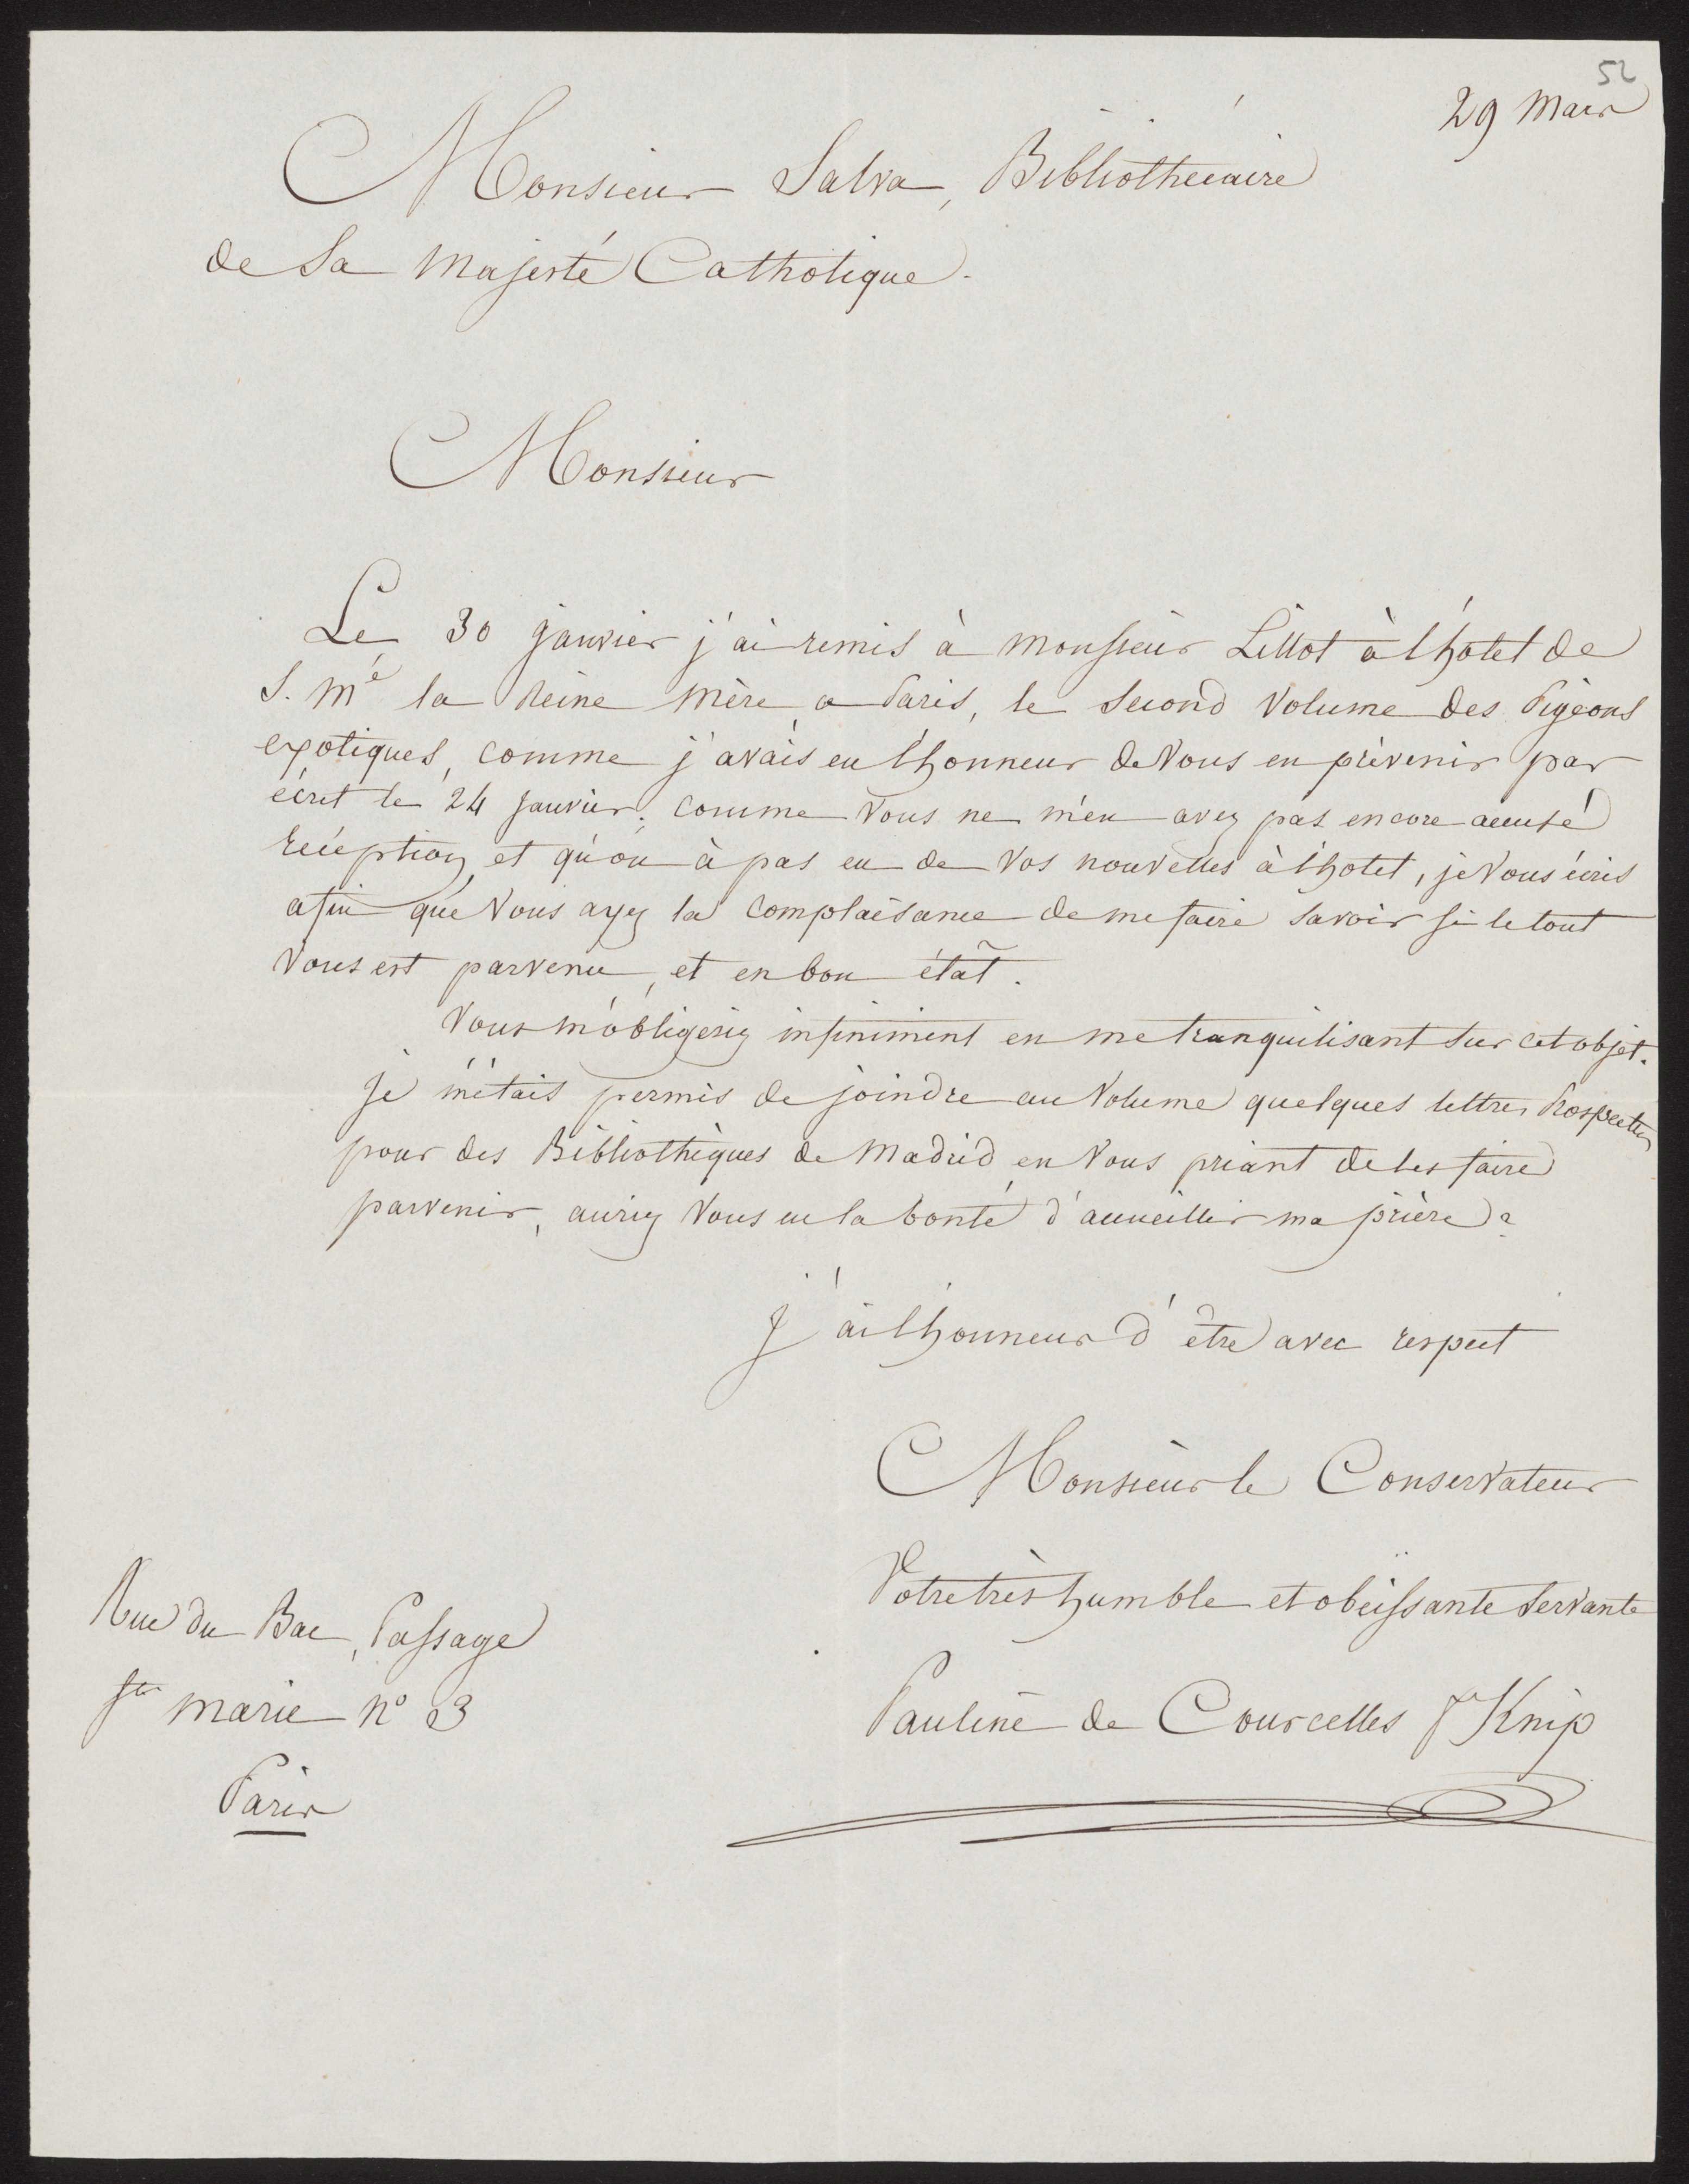 52
29 Mars
Monsieur Salva, Bibliothecaire
de Sa Majesté Catholique.
Monsieur
Le 30 janvier j'ai remis à monsieur Lillot à l'hotel de
S. Mé la Reine Mère, a Paris, le Second Volume des Pigeons
exotiques, comme j'avais eu l'honneur de Vous en prévenir par
écrit le 24 janvier. comme Vous ne m'en avez pas encore accusé
réception, et qu'on à pas eu de Vos nouvelles à l'hotel, je Vous écris
afin que Vous ayez la complaisance de me faire savoir si le tout
Vous est parvenu, et en bon état.
Vous m'obligeriez infiniment en me tranquilisant sur cet objet.
Je m'étais permis de joindre au Volume quelques lettres Prospectus
pour des Bibliothèques de Madrid, en Vous priant de les faire
parvenir, auriez Vous eu la bonté d'accueillir ma prière?
J'ai l'honneur d'être avec respect
Monsieur le Conservateur
Votre très humble et obéissante Servante
Pauline de Courcelles Knip
Rue du Bac, Passage
Ste marie n° 3
Paris